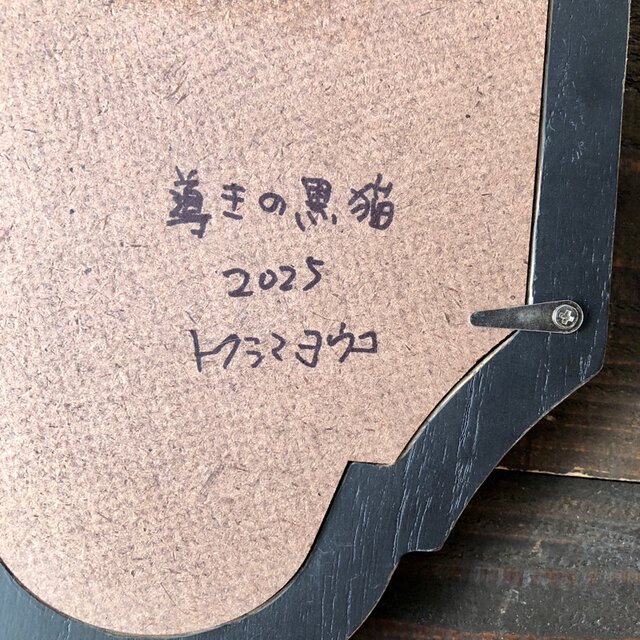 導きの黒猫
2025
トクラマヨウコ